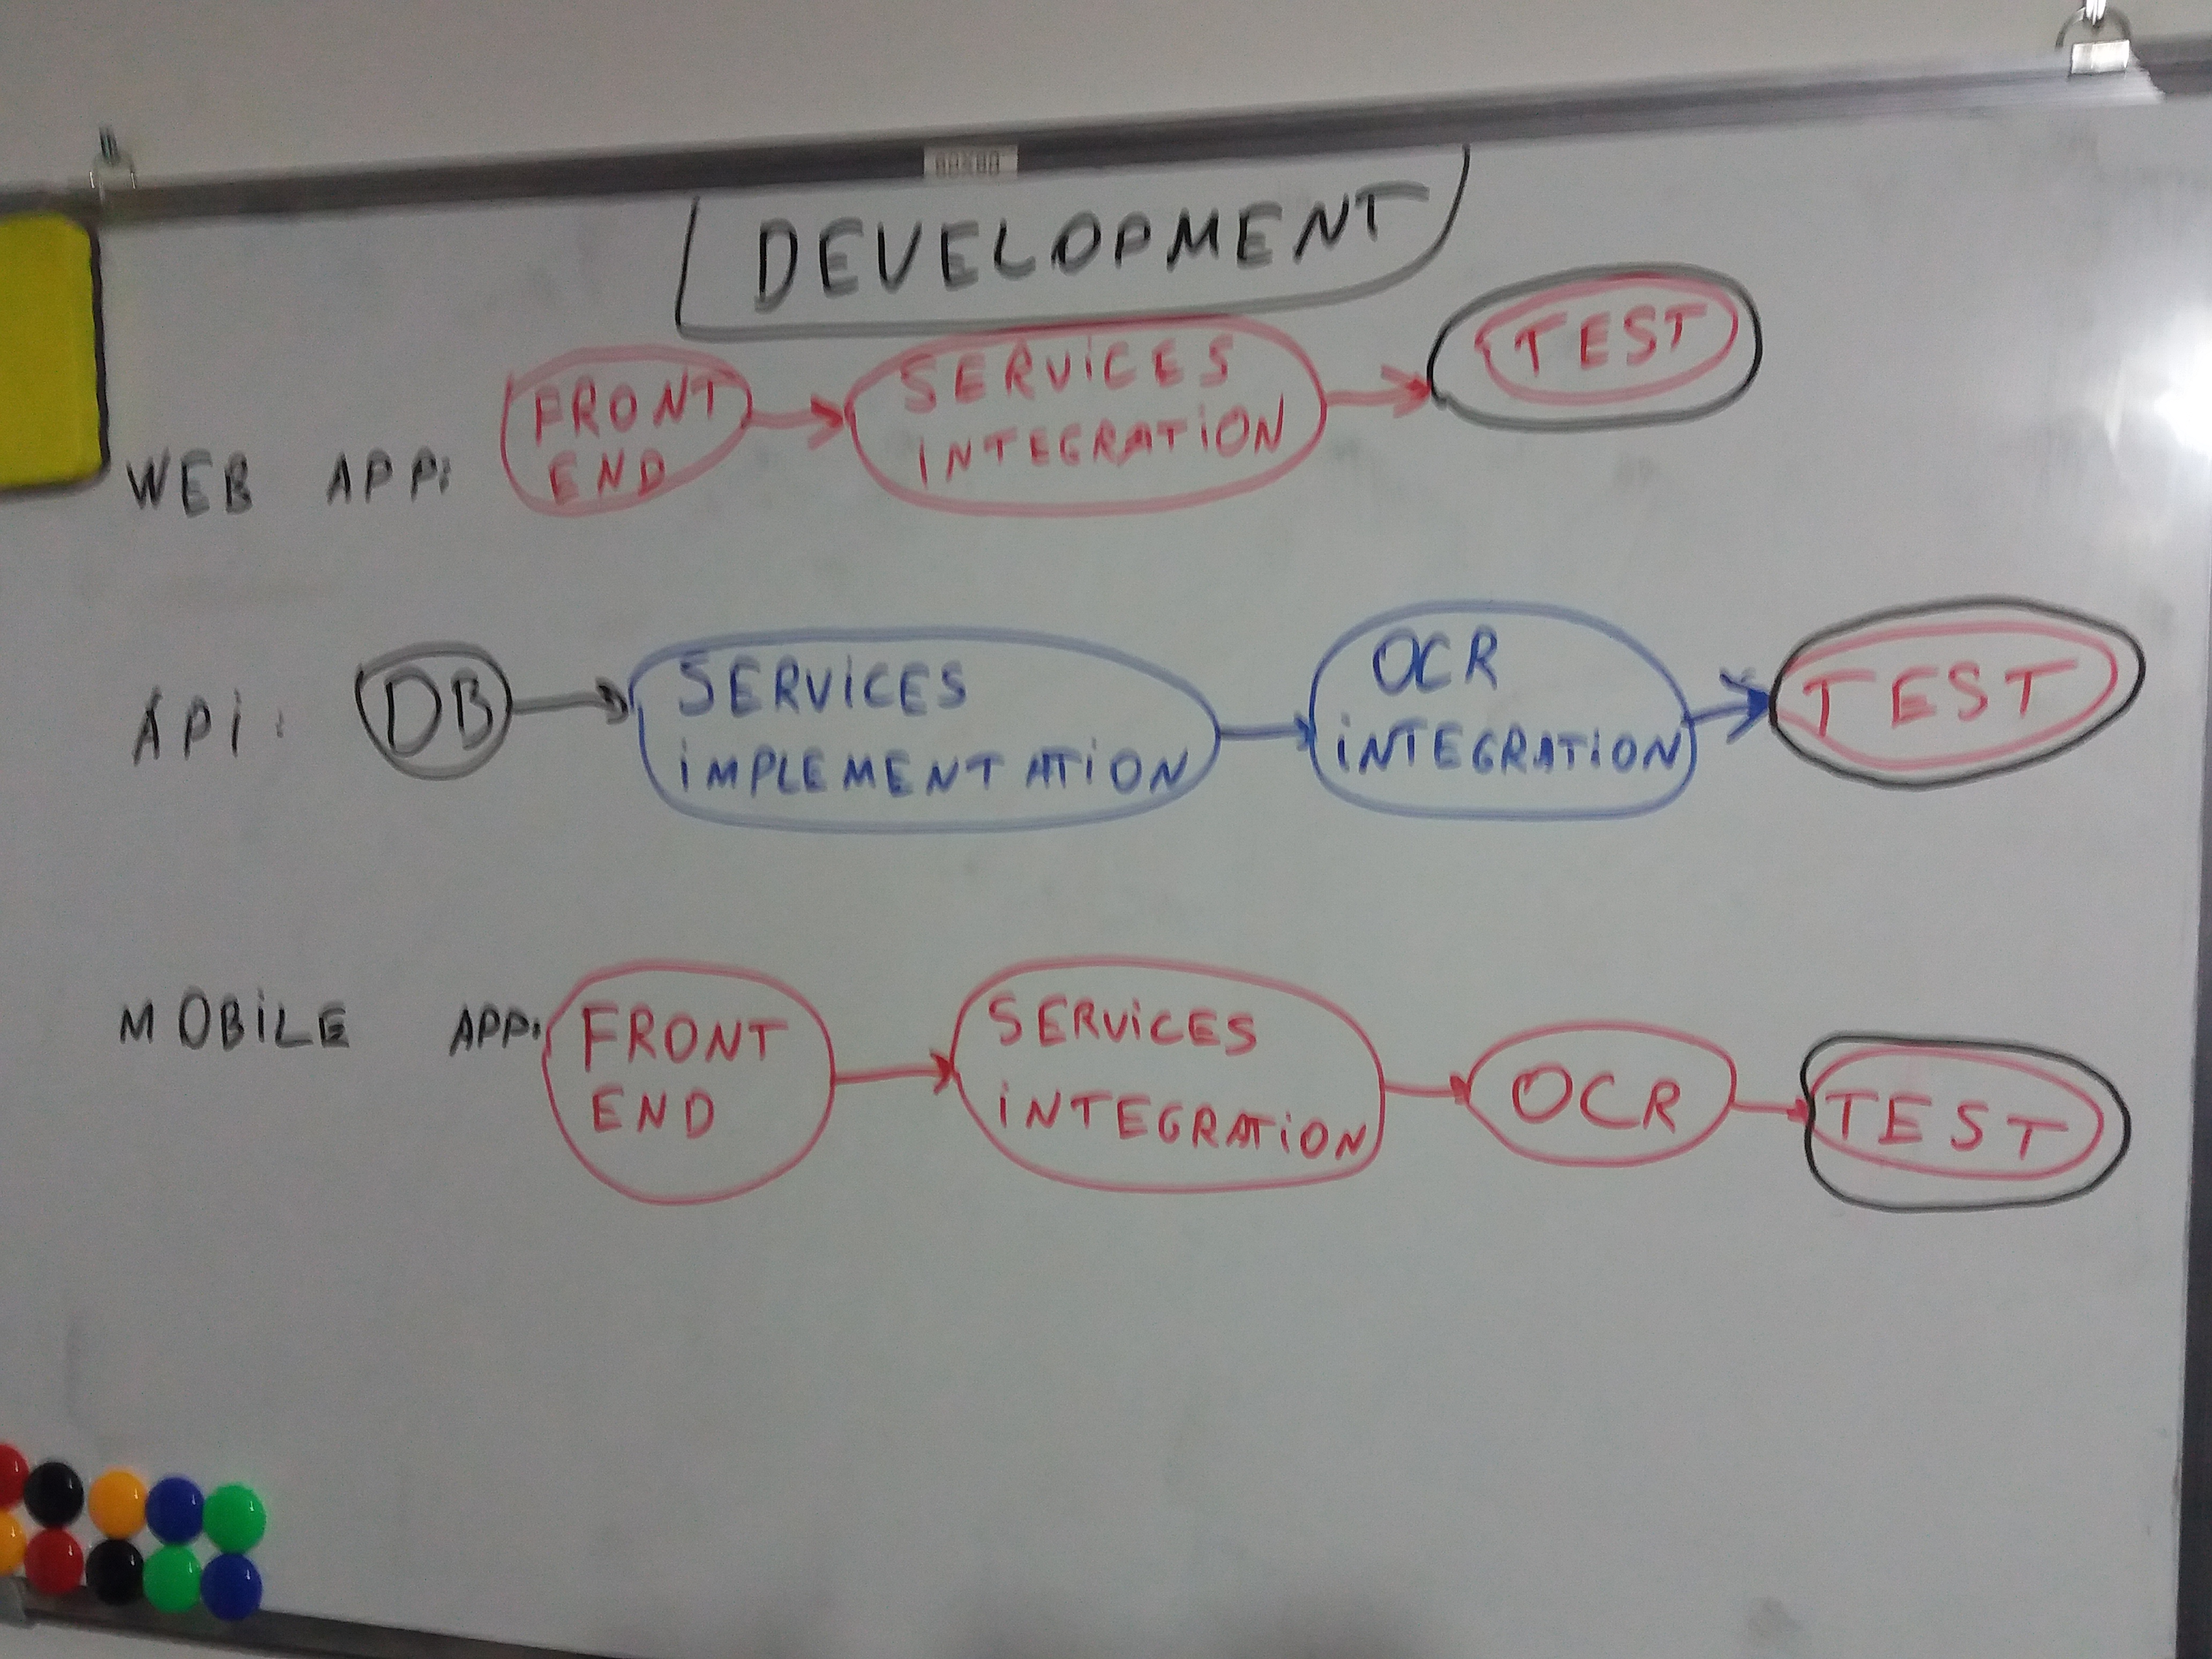 DEVELOPMENT
WEB APP:
FRONT
END
SERVICES
INTEGRATION
TEST
API:
DB
SERVICES
IMPLEMENTATION
OCR
INTEGRATION
TEST
MOBILE APP:
FRONT
END
SERVICES
INTEGRATION
OCR
TEST